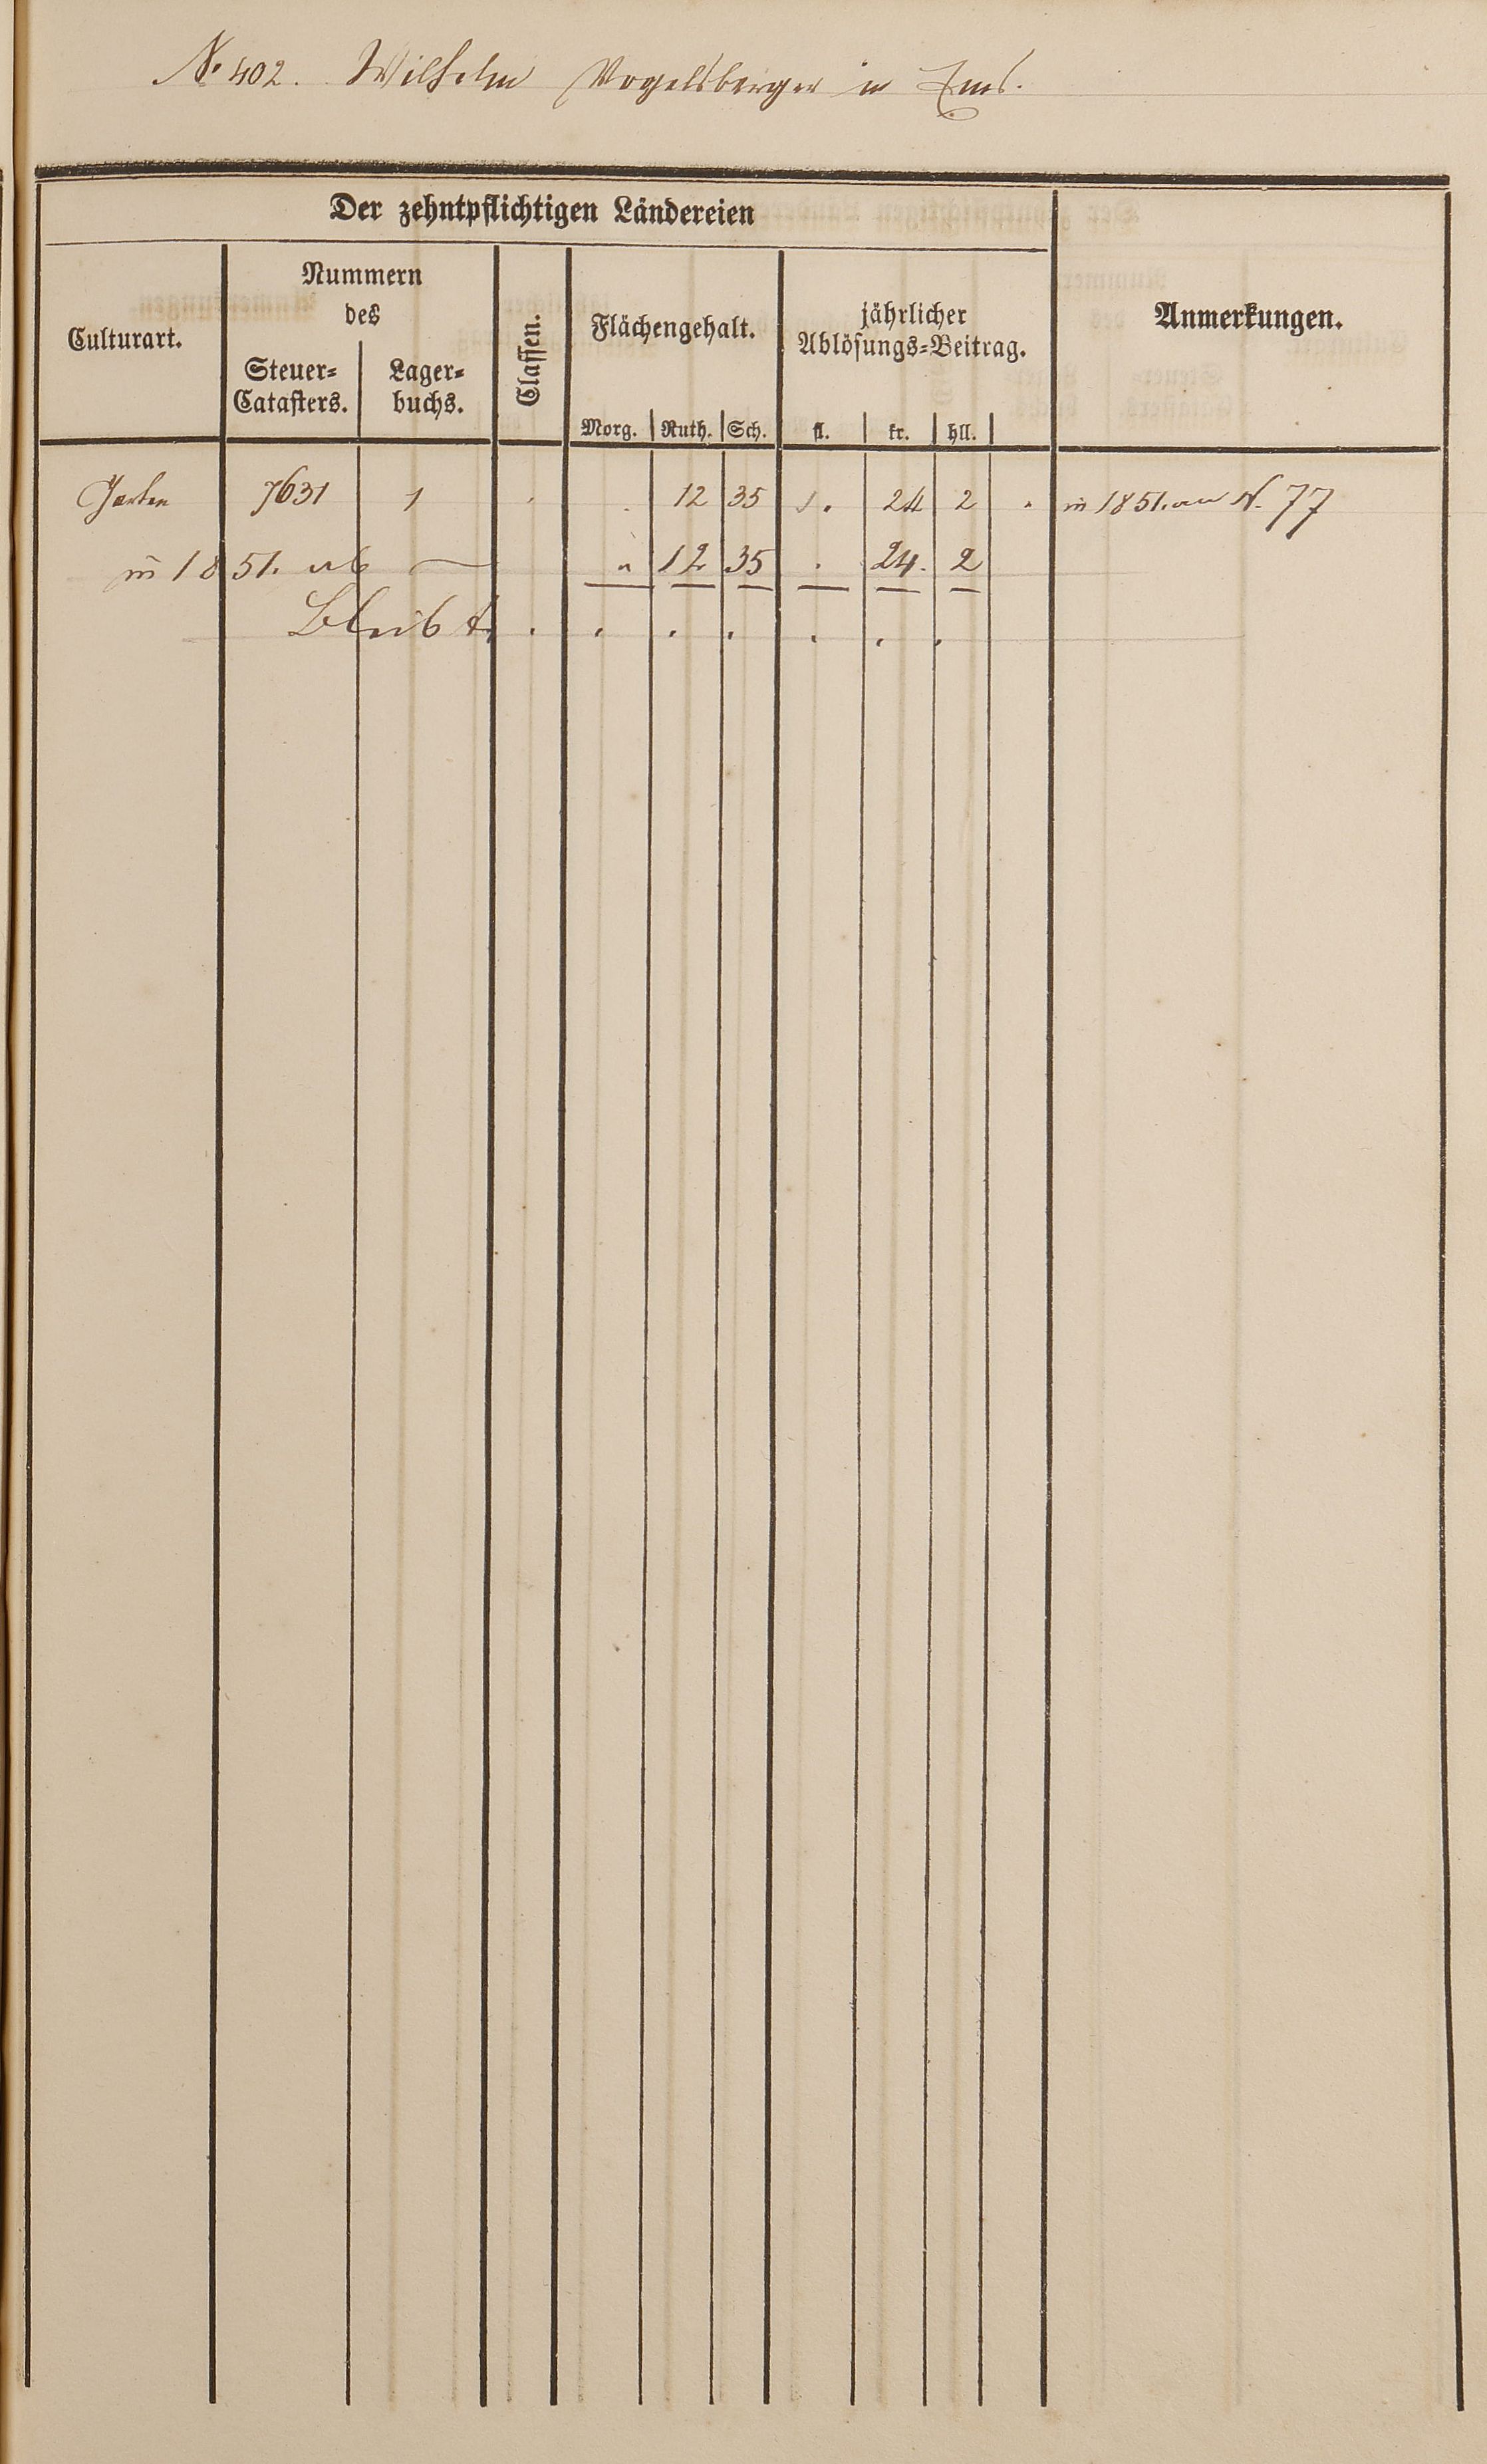 № 402. Wilhelm Vogelsberger in Ems.
Der zehntpflichtigen Ländereien
Culturart.
Nummern
des
Steuer=
Catasters.
Lager=
buchs.
Classen.
Flächengehalt.
Morg. Ruth. Sch.
jährlicher
Ablösungs=Beitrag.
fl. kr. hll.
Anmerkungen.
Garten 7631 1 . . 12 35 . 24 2 . in 1851. an N. 77
in 1851. ab — " 12 35 . 24. 2
Bleibt. . . . . . . .